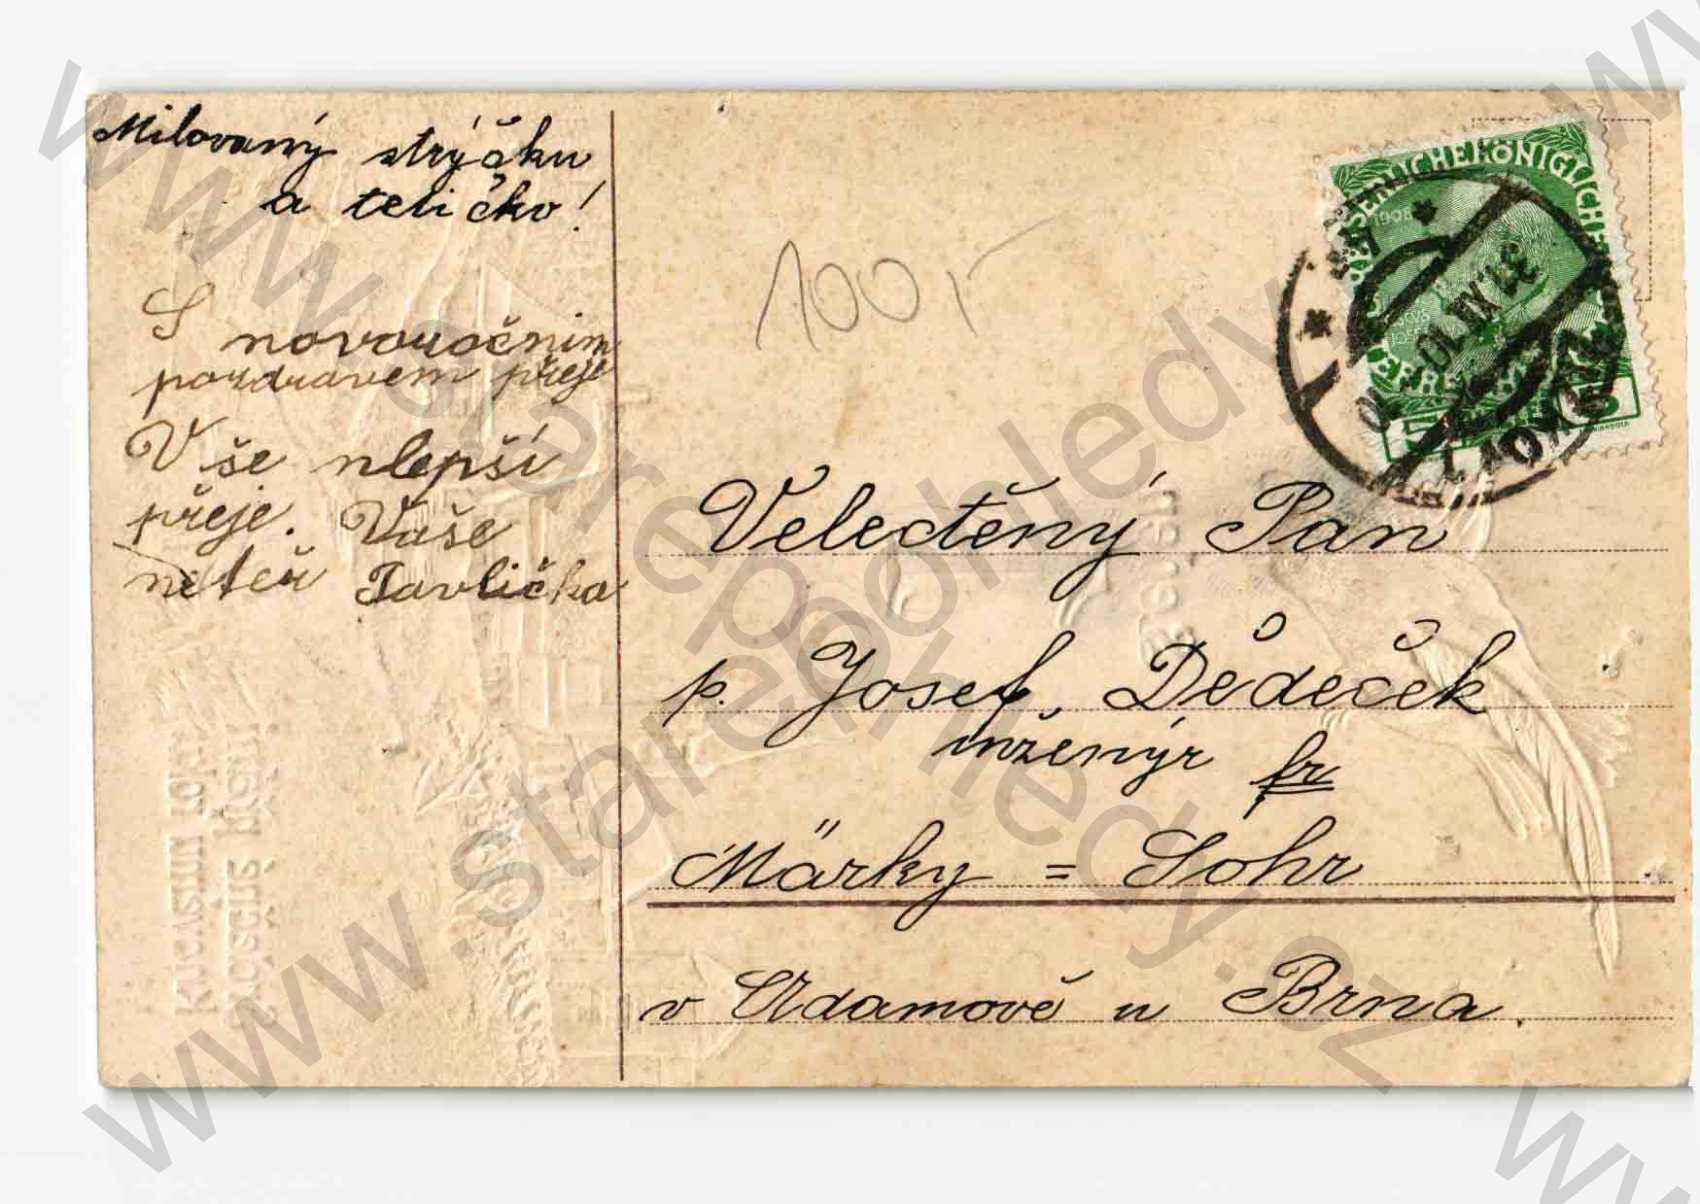 Milovaný strýčku
a tetičko!
S novoročnim
pozdravem přeje
Vše nlepší
přeje. Vaše
neteř Pavlička
100,-
KAISERLICHE KÖNIGLICHE
1908
31.XII.10
5
Velectěný Pan
p. Josef Dědeček
inženýr fr
Märky = Sohr
v Adamově u Brna.
www.starepohledy.cz
www.starepohledy.cz